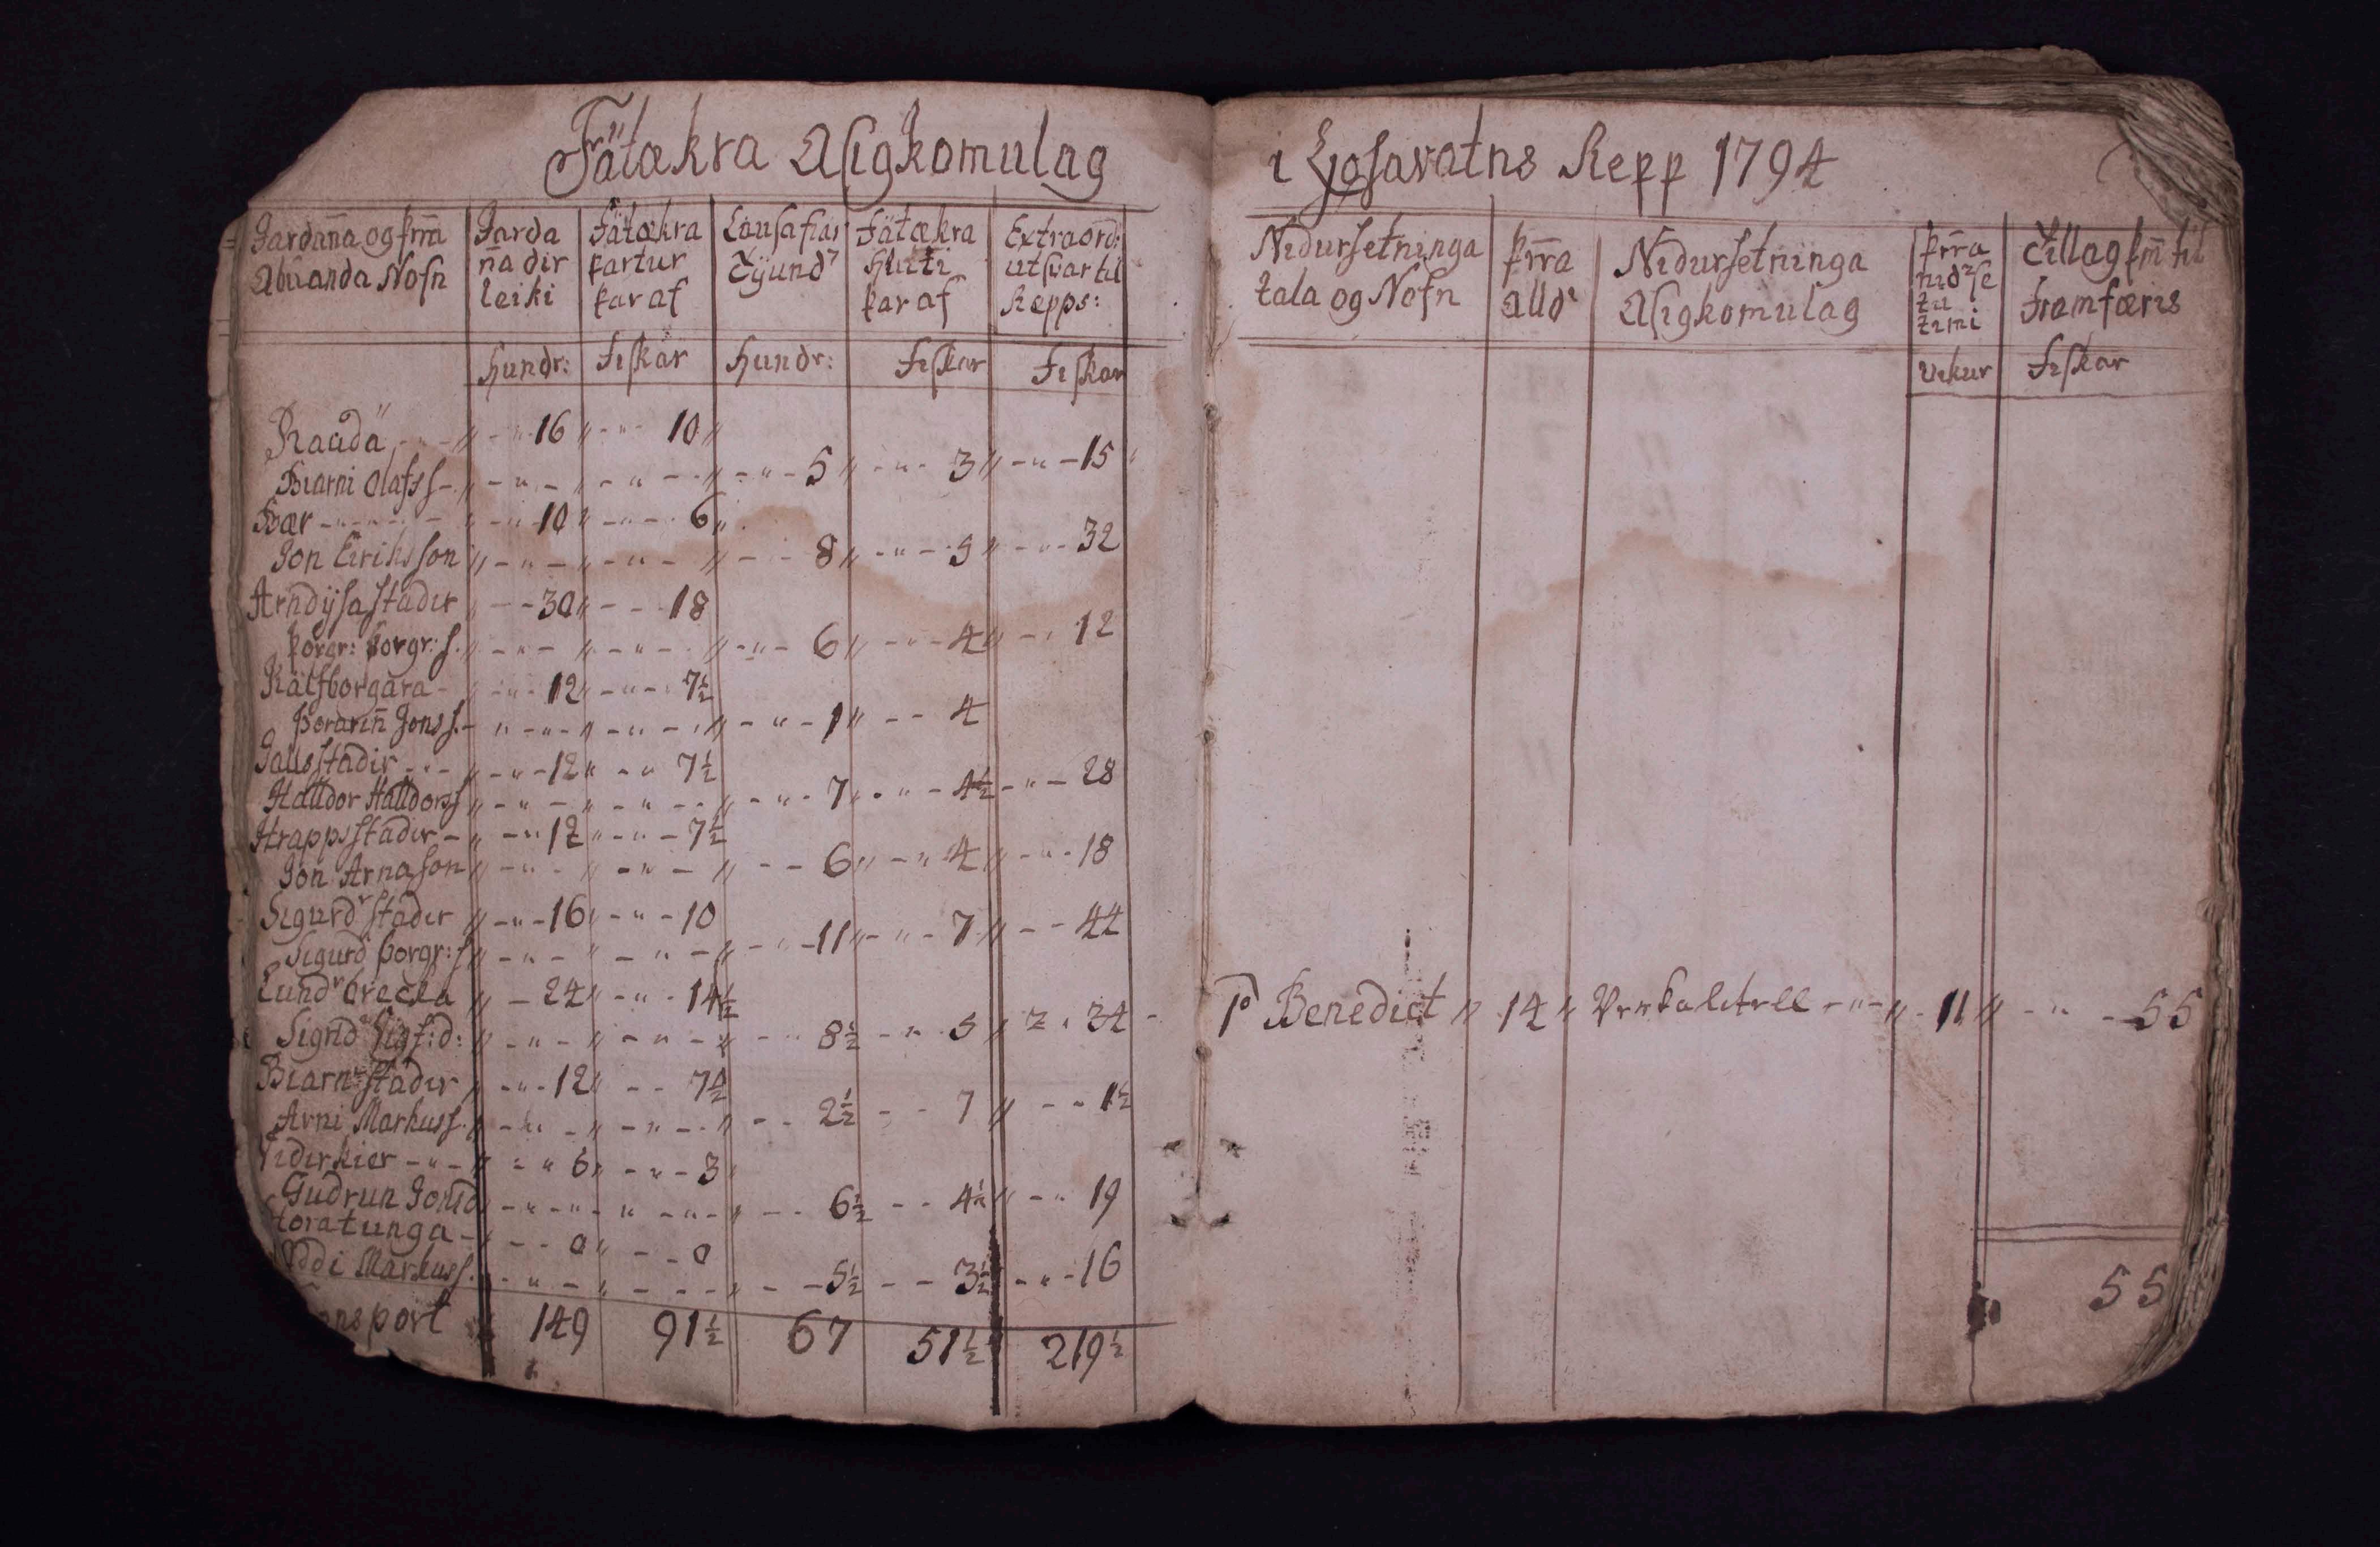 Fätækra Asigkomulag
Jardan̄a og þrr̄a
Abüanda Nofn
Jarda
n̄a dir
leiki
Fätækra
partur
þar af
Lausafiar
Tÿund
Fätækra
Hluti
þar af
Extraord:
utsvar til
Repps:
Hundr: Fiskar Hundr: Fiskar Fiskar
Raudä 16 10
Biarni Olafss 5 3 15
Bær 10 6
Jon Eiriksson 8 5 32
Arndÿsastader 30 18
Þorgr: Þorgr: s. 6 4 12
Kälfborgara 12 7½
Þorarin̄ Jonss. 1 4
Jallsstadir 12 7½
Halldor Halldorss 7 4½ 28
Hrappsstader 12 7½
Jon Arnason 6 4 18
Sigurdʳstader 16 10
Sigurd Þorgr: s 11 7 44
Lundʳbrecka 24 14½
Sigrid Sigf:d: 8½ 5 2 34
Biarnastader 12 7½
Arni Markuss. 2½ 7 1½
Vidirkier 5 3
Gudrun Jonsd 6½ 4½ 19
Storatunga 0 0
Oddi Markuss. 5½ 3½ 16
ansport 149 91½ 67 51½ 219½
i Liosavatns Repp 1794
Nidursetninga
tala og Nofn
þrr̄a
alldʳ
Nidursetninga
Asigkomulag
þrr̄a
nidʳse
tu
timi
Tillag þrr̄ til
Framfæris
Vikur Fiskar
1º Benedict 14 11 55
55